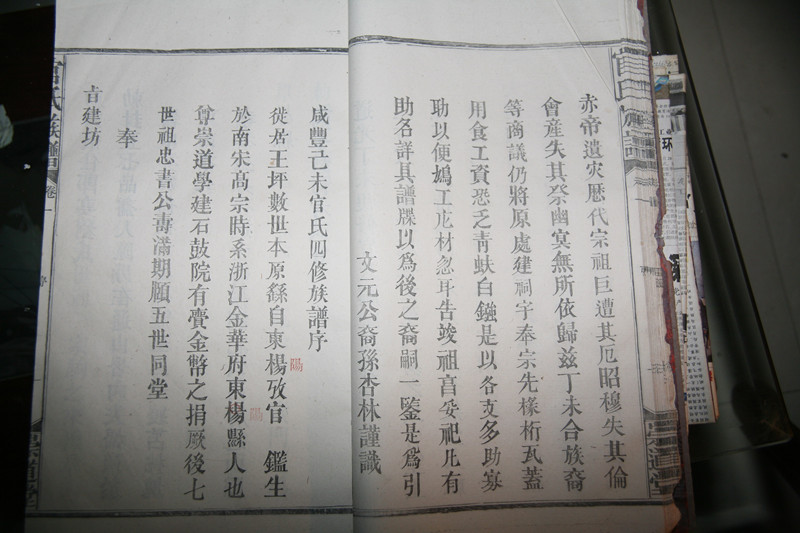 赤帝遺灾歷代宗祖巨遭其厄昭穆失其倫
會産失其祭幽冥無所依歸兹丁未合族裔
等商議仍將原處建祠宇奉宗先椽桁瓦蓋
用食工資恐乏青蚨白鏹是以各支多助寡
助以便鳩工庀材忽耳告竣祖亯妥祀凡有
助名詳具譜牒以爲後之裔嗣一鑒是爲引
文元公裔孫杏林謹識
咸豐己未官氏四修族譜序
徙居王坪數世本原繇自東楊攷官 鑑生
陽
於南宋高宗時系浙江金華府東楊縣人也
陽
尊崇道學建石鼓院有賫金幣之捐厥後七
世祖忠書公壽滿期願五世同堂
奉
旨建坊
官氏族譜
卷一
序
官氏族譜
崇道堂
崇道堂
环